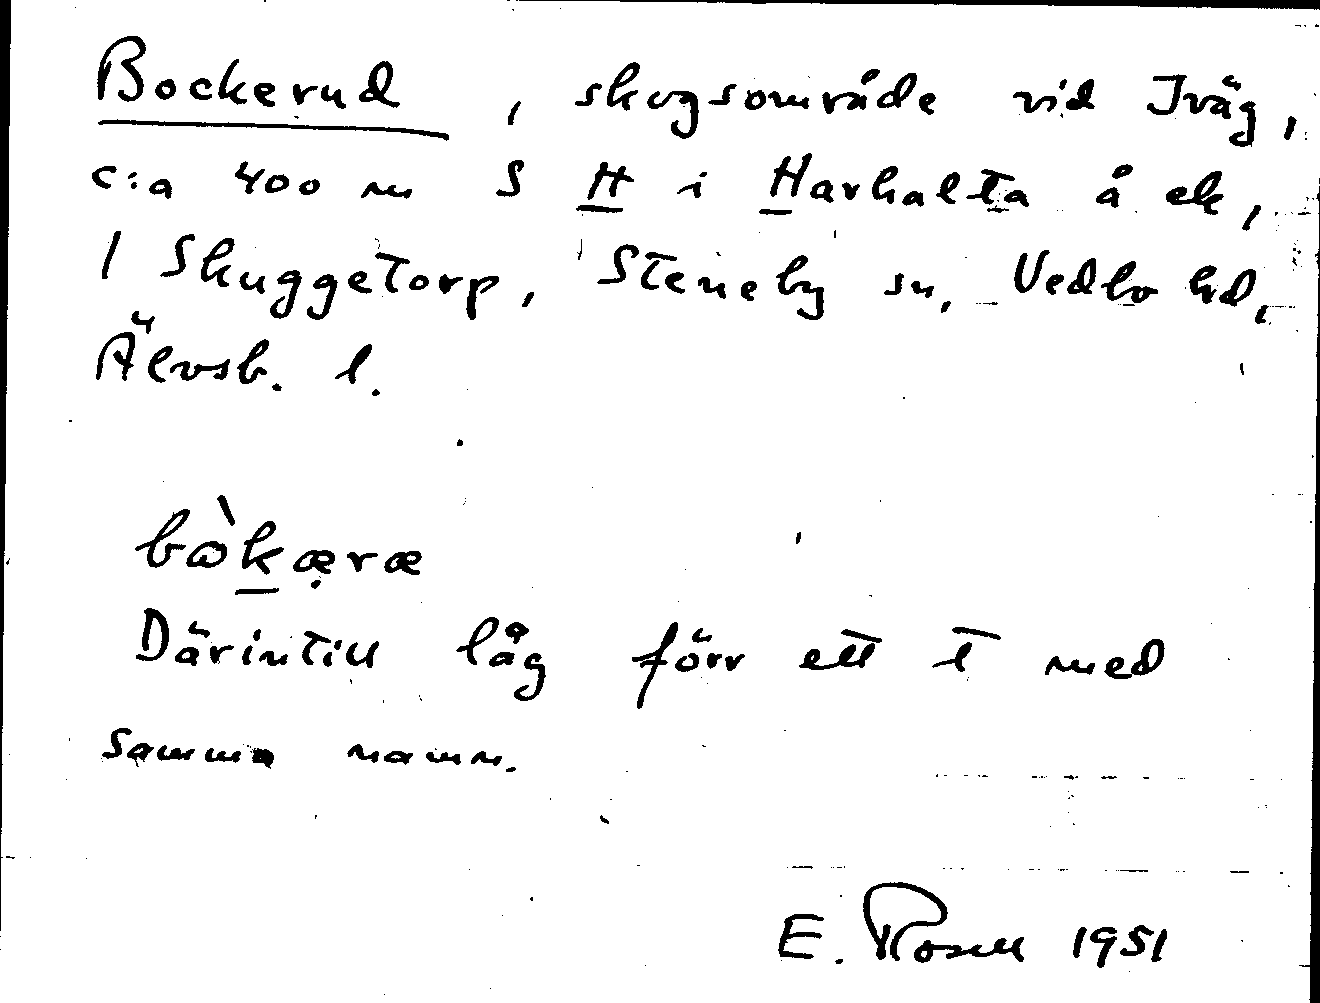 Bockerud, skogsområde vid Jväg,
c:a 400 m S H i Harkalta å ek,
1 Skuggetorp, Steneby sn, Vedbo hd,
Älvsb. l.
bòkæ̣ræ
Därintill låg förr ett t med
samma namn.
E. Rosell 1951